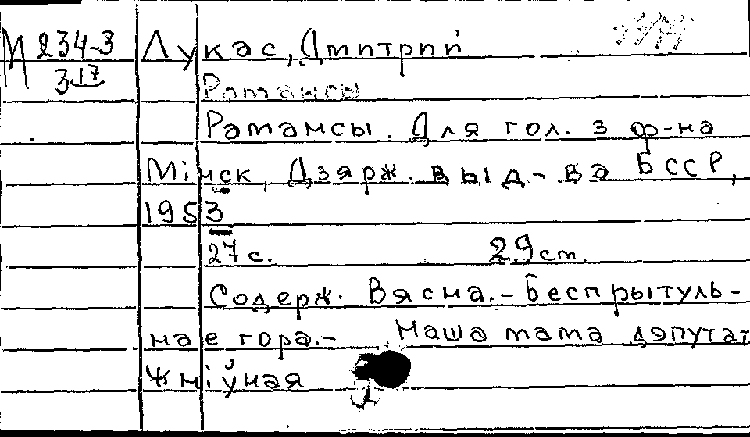 М 234-3 Лукас, Дмитрий
3 17
Романсы
Рамансы. Для гол. з ф-на
Мінск, Дзярж. выд-ва БССР,
1953
27 с. 29 cm.
Содерж. Вясна. - Беспрытуль-
нае гора. - Наша мама дэпутат
Жніўная